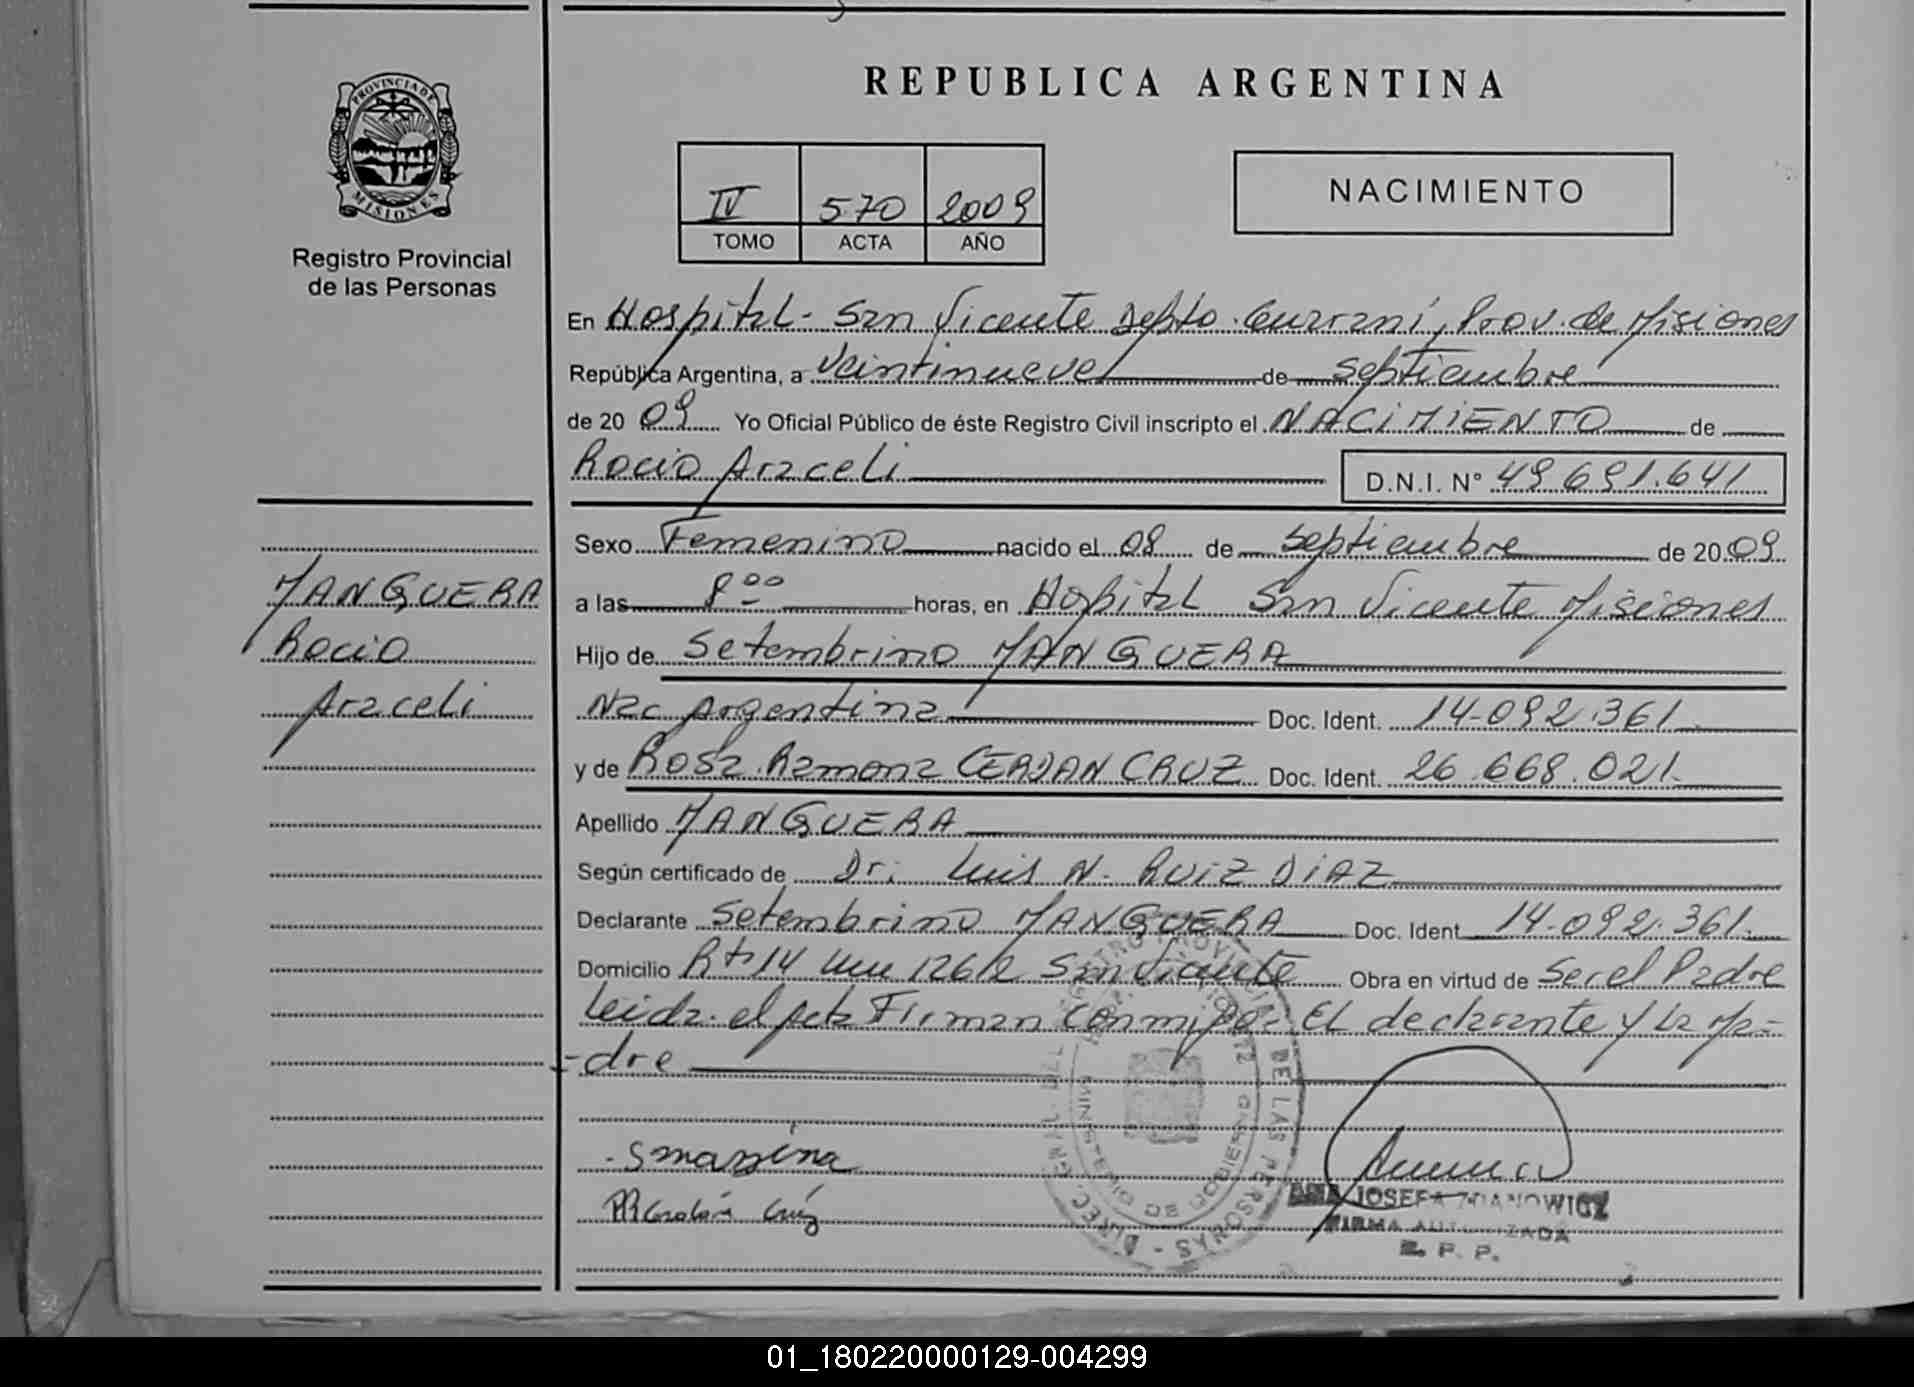 REPUBLICA ARGENTINA
PROVINCIA DE
MISIONES
Registro Provincial
de las Personas
IV 570 2009
TOMO ACTA AÑO
NACIMIENTO
En Hospital - San Vicente Depto. Guarani, Prov. de Misiones
República Argentina, a Veintinueve de Septiembre
de 20 09 Yo Oficial Público de éste Registro Civil inscripto el NACIMIENTO de
Rocio Araceli D.N.I. N° 49.691.641
Sexo Femenino nacido el 09 de Septiembre de 20 09
a las 8 00 horas, en Hospital San Vicente Misiones
Hijo de Setembrino MANGUERA
Nac Argentina Doc. Ident. 14.092.361
y de Rosa Ramona CERDAN CRUZ Doc. Ident. 26.668.021
Apellido MANGUERA
Según certificado de Dr. Luis N. RUIZ DIAZ
Declarante Setembrino MANGUERA Doc. Ident 14.092.361
Domicilio Rta 14 km 1262 San Vicente Obra en virtud de Ser el Padre
Leida el Acta Firman Conmigo - El declarante y La Ma-
-dre
MANGUERA
Rocio
Araceli
DE LAS PERSONAS
MINISTERIO DE GOBIERNO
JOSEFA
FIRMA AUTORIZADA
R. P. P.
01_180220000129-004299